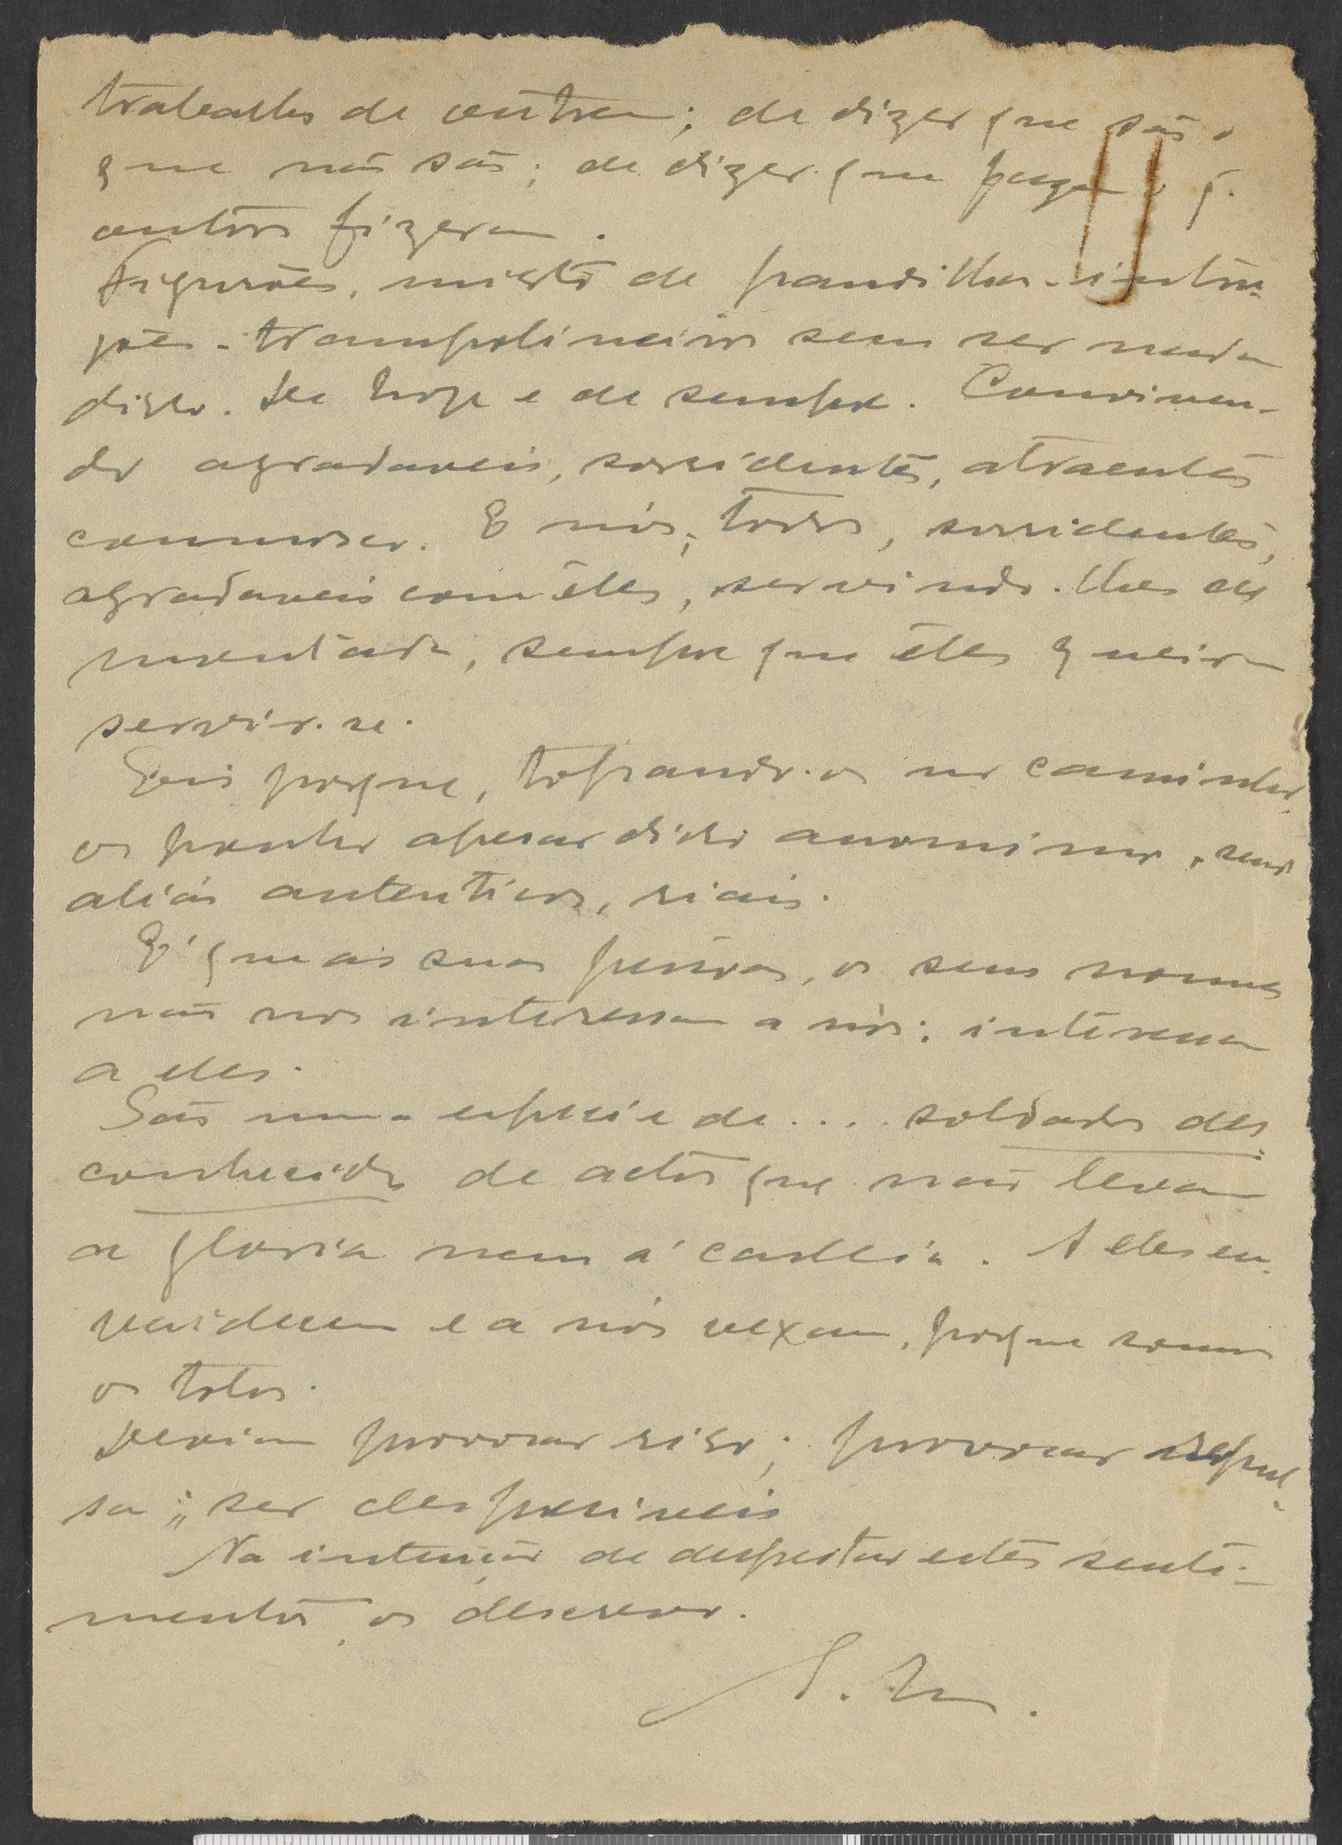 trabalhos de outrem; de dizer que são o
que não são; de dizer que fizeram o q.
outros fizeram.
Figurões, misto de pandilhas-intru-
jões-trampolineiros sem ser nada
disso. De hoje e de sempre. Conviven-
do agradaveis, sorridentes, atraentes
connosco. E nós, todos, sorridentes,
agradaveis com êles, servindo-lhes de
montada, sempre que êles queiram
servir-se.
Eis porque, topando-os no caminho,
os ponho apesar disso anonimos, sendo
aliás autenticos, riais.
E' que as suas pessoas, os seus nomes
não nos interessam a nós; interessam
a eles.
São uma especie de.... soldados des-
conhecidos de actos que não levam
a gloria nem á cadeia. A eles en-
vaidecem e a nós vexam, porque somos
os tolos.
Deviam provocar riso; provocar repul-
sa; ser despresiveis
Na intenção de despertar estes senti-
mentos, os descrevo.